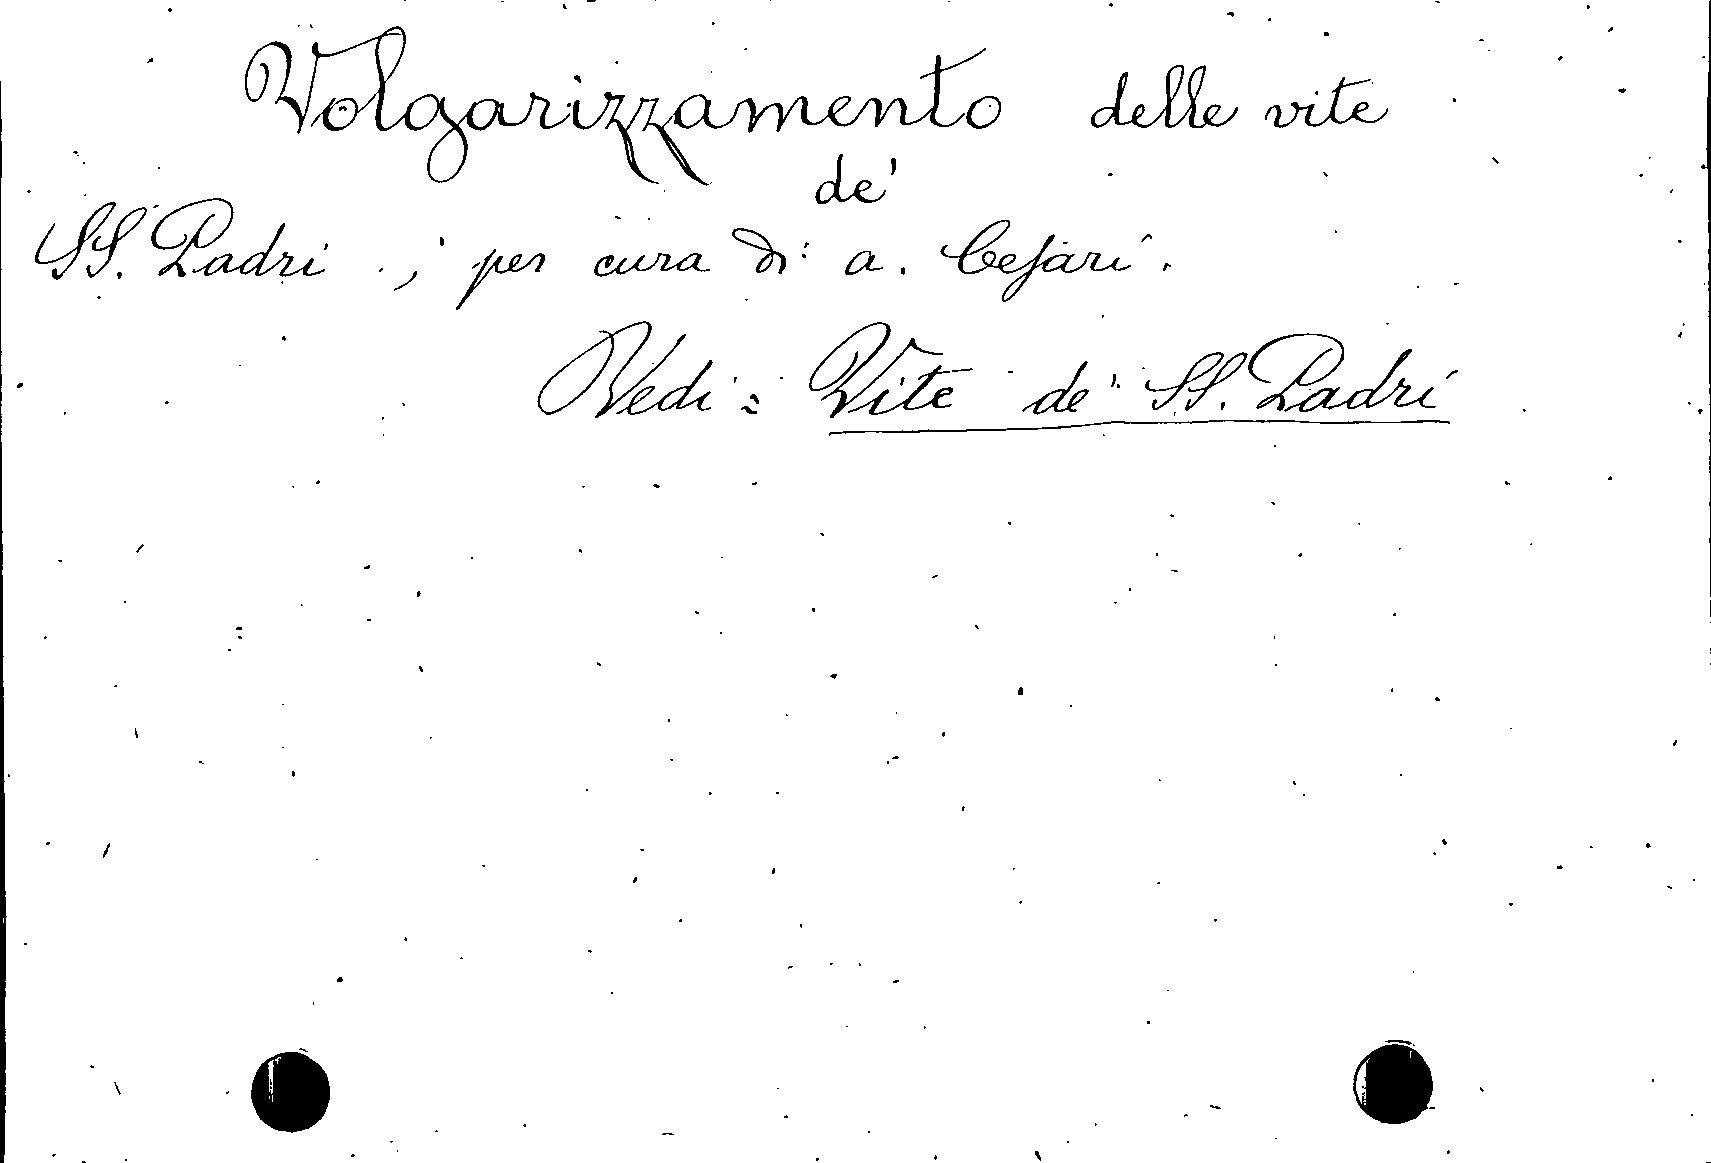 Volgarizzamento delle vite
de'
SS. Padri ; per cura di: a. Cesari.
Vedi: Vite de' SS. Padri